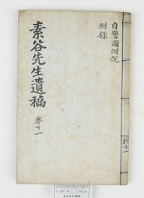 自警圖附説
附錄
素谷先生遺稿 卷十一